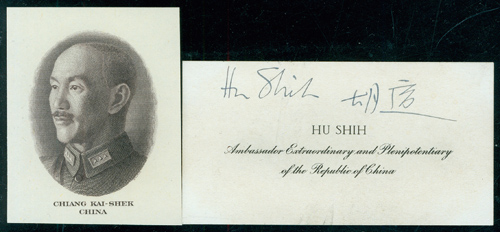 CHIANG KAI-SHEK
CHINA
Hu Shih 胡适
HU SHIH
Ambassador Extraordinary and Plenipotentiary
of the Republic of China